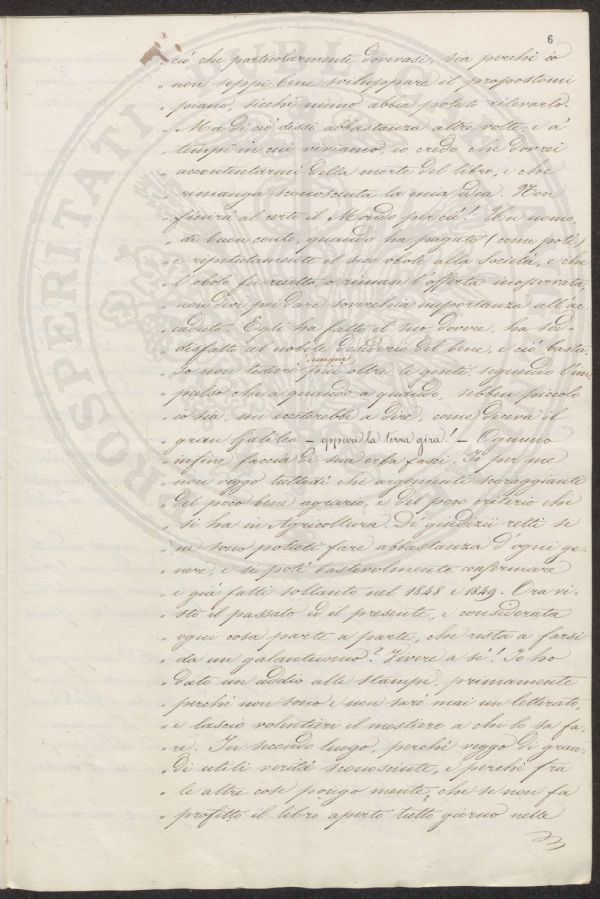 6
„ ciò che particolarmente dovevasi, sia perchè io
„ non seppi bene sviluppare il propostomi
„ piano, sicchè niuno abbia potuto rilevarlo.
„ Ma di ciò dissi abbastanza altre volte; e a'
„ tempi in cui viviamo, io credo che dovrei
„ accontentarmi della morte del libro, e che
„ rimanga sconosciuta la mia idea. Non
„ finirà al certo il Mondo per ciò! Un uomo
„ di buon conto, quando ha pagato (come potè)
„ e ripetutamente il suo obolo alla Società, e che
„ l'obolo fu reietto, o rimase l'offerta inosservata,
„ non deve poi dare soverchia importanza all'ac-
„ caduto. Egli ha fatto il suo dovere, ha sod-
„ disfatto al nobile desiderio del bene, e ciò basta.
„ Io non tedierò dunque più oltre le genti, seguendo l'im-
„ pulso che a quando a quando, sebben piccolo
„ io sia, mi ecciterebbe a dire, come diceva il
„ gran Galileo – eppure la terra gira! – Ognuno
„ infine faccia di sua erba fasci. Io per me
„ non veggo tuttodì che argomenti scoraggianti
„ del poco bene agrario, e del poco criterio che
„ si ha in Agricoltura. De' giudizii retti se
„ ne sono potuti fare abbastanza d'ogni ge-
„ nere, e si potè bastevolmente confermare
„ e già fatti soltanto nel 1848 e 1849. Ora vi-
„ sto il passato ed il presente, e considerata
„ ogni cosa parte a parte, che resta a farsi
„ da un galantuomo? Vivere a sè! Io ho
„ dato un addio alle stampe, primamente
„ perchè non sono e non sarò mai un letterato,
„ e lascio volentieri il mestiere a chi lo sa fa-
„ re. In secondo luogo, perchè veggo di gran-
„ di utili verità sconosciute, e perchè fra
„ le altre cose pongo mente, che se non fa
„ profitto il libro aperto tutto giorno nelle
PROSPERITATI PUBLICAE